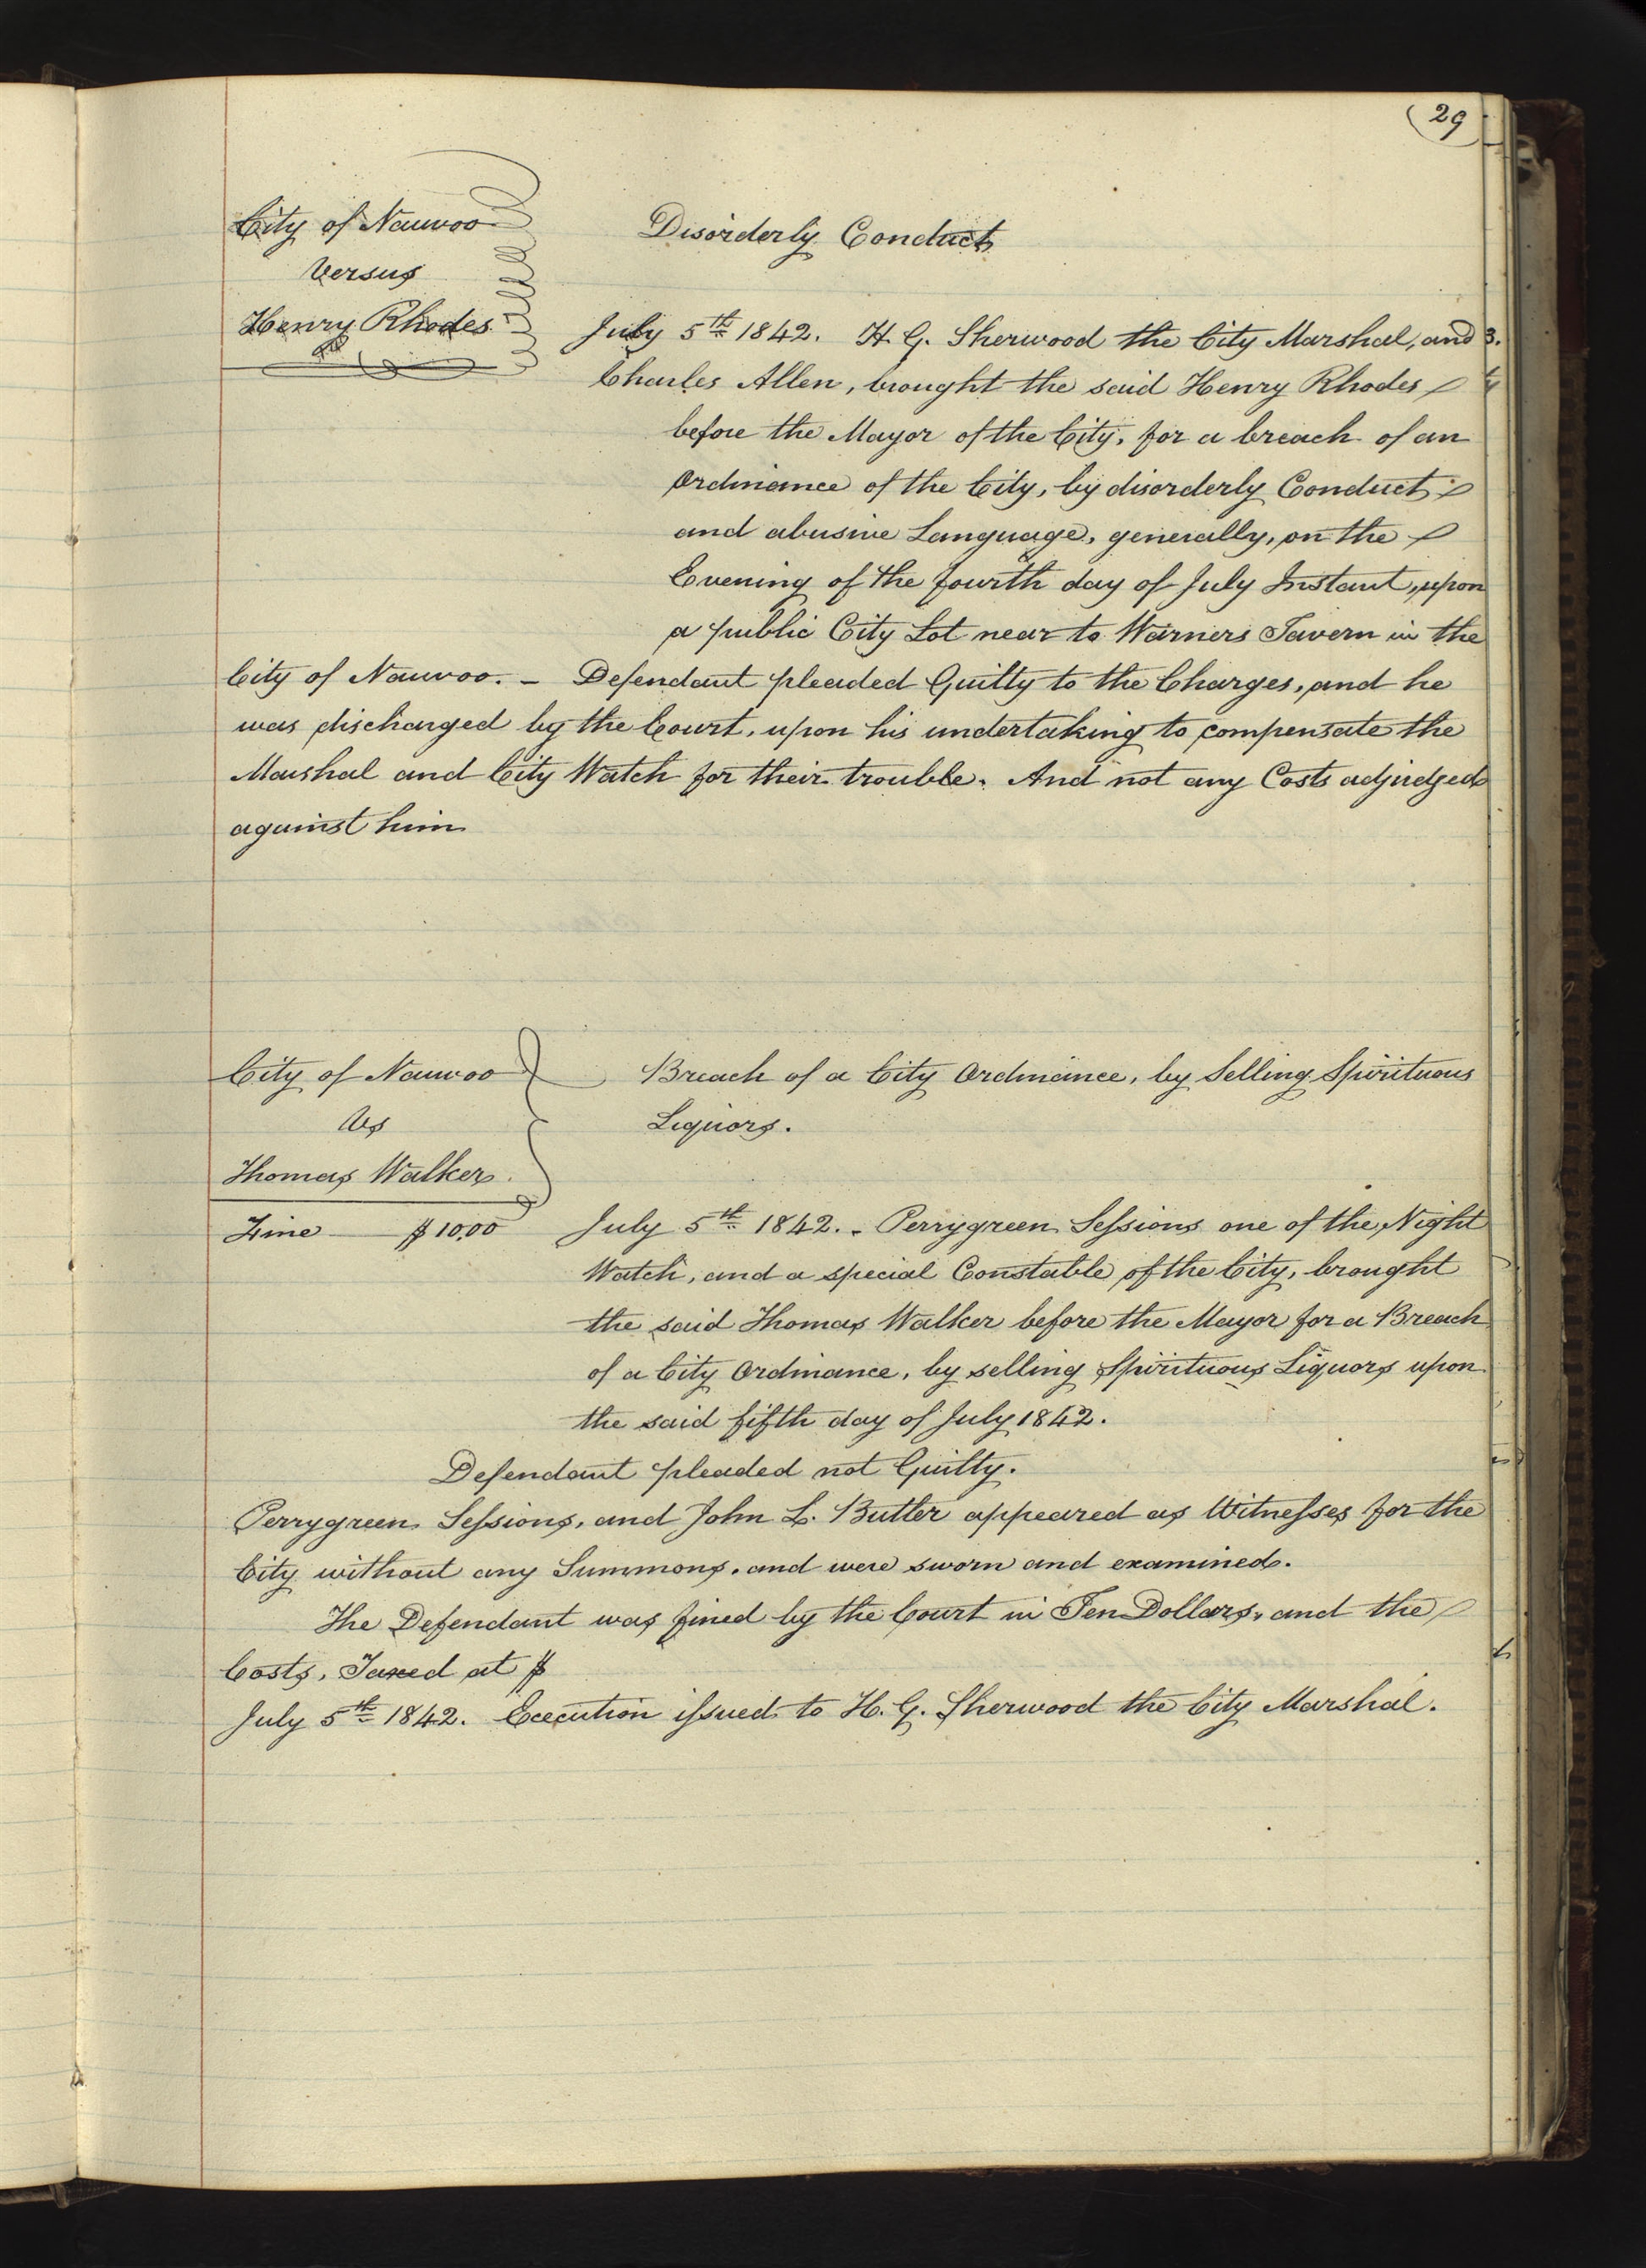 29
City of Nauvoo
Versus
Henry Rhodes
Disorderly Conduct
July 5th 1842. H. G. Sherwood the City Marshal, and
Charles Allen, brought the said Henry Rhodes
before the Mayor of the City, for a breach of an
Ordinance of the City, by disorderly Conduct
and abusive Language, generally, on the
Evening of the fourth day of July Instant, upon
a public City Lot near to Warners Tavern in the
City of Nauvoo. – Defendant pleaded Guilty to the Charges, and he
was discharged by the Court, upon his undertaking to compensate the
Marshal and City Watch for their trouble. And not any Costs adjudged
against him
City of Nauvoo
vs
Thomas Walker.
Fine $10,00
Breach of a City Ordinance, by Selling Spirituous
Liquors.
July 5th 1842. - Perrygreen Sessions one of the Night
Watch, and a special Constable of the City, brought
the said Thomas Walker before the Mayor for a Breach
of a City Ordinance, by selling Spirituous Liquors upon
the said fifth day of July 1842.
Defendant pleaded not Guilty.
Perrygreen Sessions, and John L. Butler appeared as Witnesses for the
City without any Summons, and were sworn and examined.
The Defendant was fined by the Court in Ten Dollars, and the
Costs, Taxed at $
July 5th 1842. Execution issued to H. G. Sherwood the City Marshal.